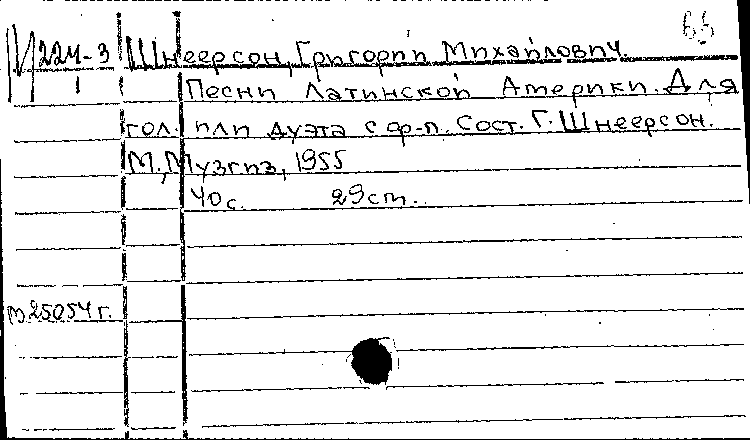 65
М 224-3 Шнеерсон, Григорий Михайлович.
1 Песни Латинской Америки. Для
гол. или дуэта с ф-п. Сост. Г. Шнеерсон.
М., Музгиз, 1955
40 с. 29 ст.
м25054г.